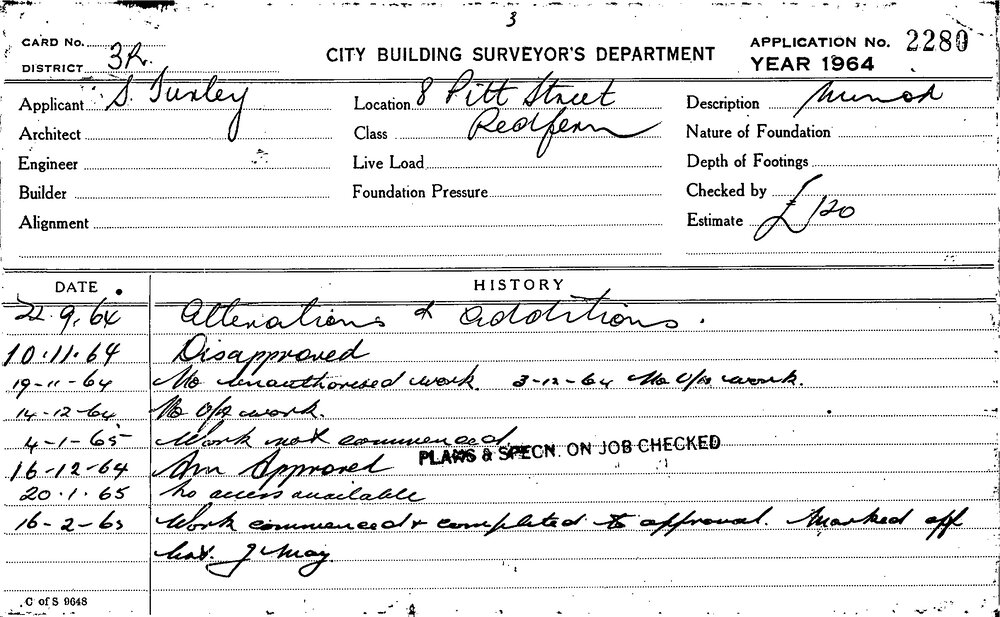 3
CARD No.
DISTRICT 3R.
CITY BUILDING SURVEYOR'S DEPARTMENT
APPLICATION No. 2280
YEAR 1964
Applicant S. Turley
Location 8 Pitt Street
Description Minor
Architect
Class Redfern
Nature of Foundation
Engineer
Live Load
Depth of Footings
Builder
Foundation Pressure
Checked by
Alignment
Estimate £120
DATE
HISTORY
22.9.64 Alterations & additions.
10.11.64 Disapproved
19-11-64 No unauthorised work. 3-12-64 No U/a work.
14-12-64 No U/a work.
4-1-65 Work not commenced
PLANS & SPECN. ON JOB CHECKED
16-12-64 Am Approved
20.1.65 No access available
16-2-65 Work commenced & completed to approval. Marked off
J May
C of S 9648